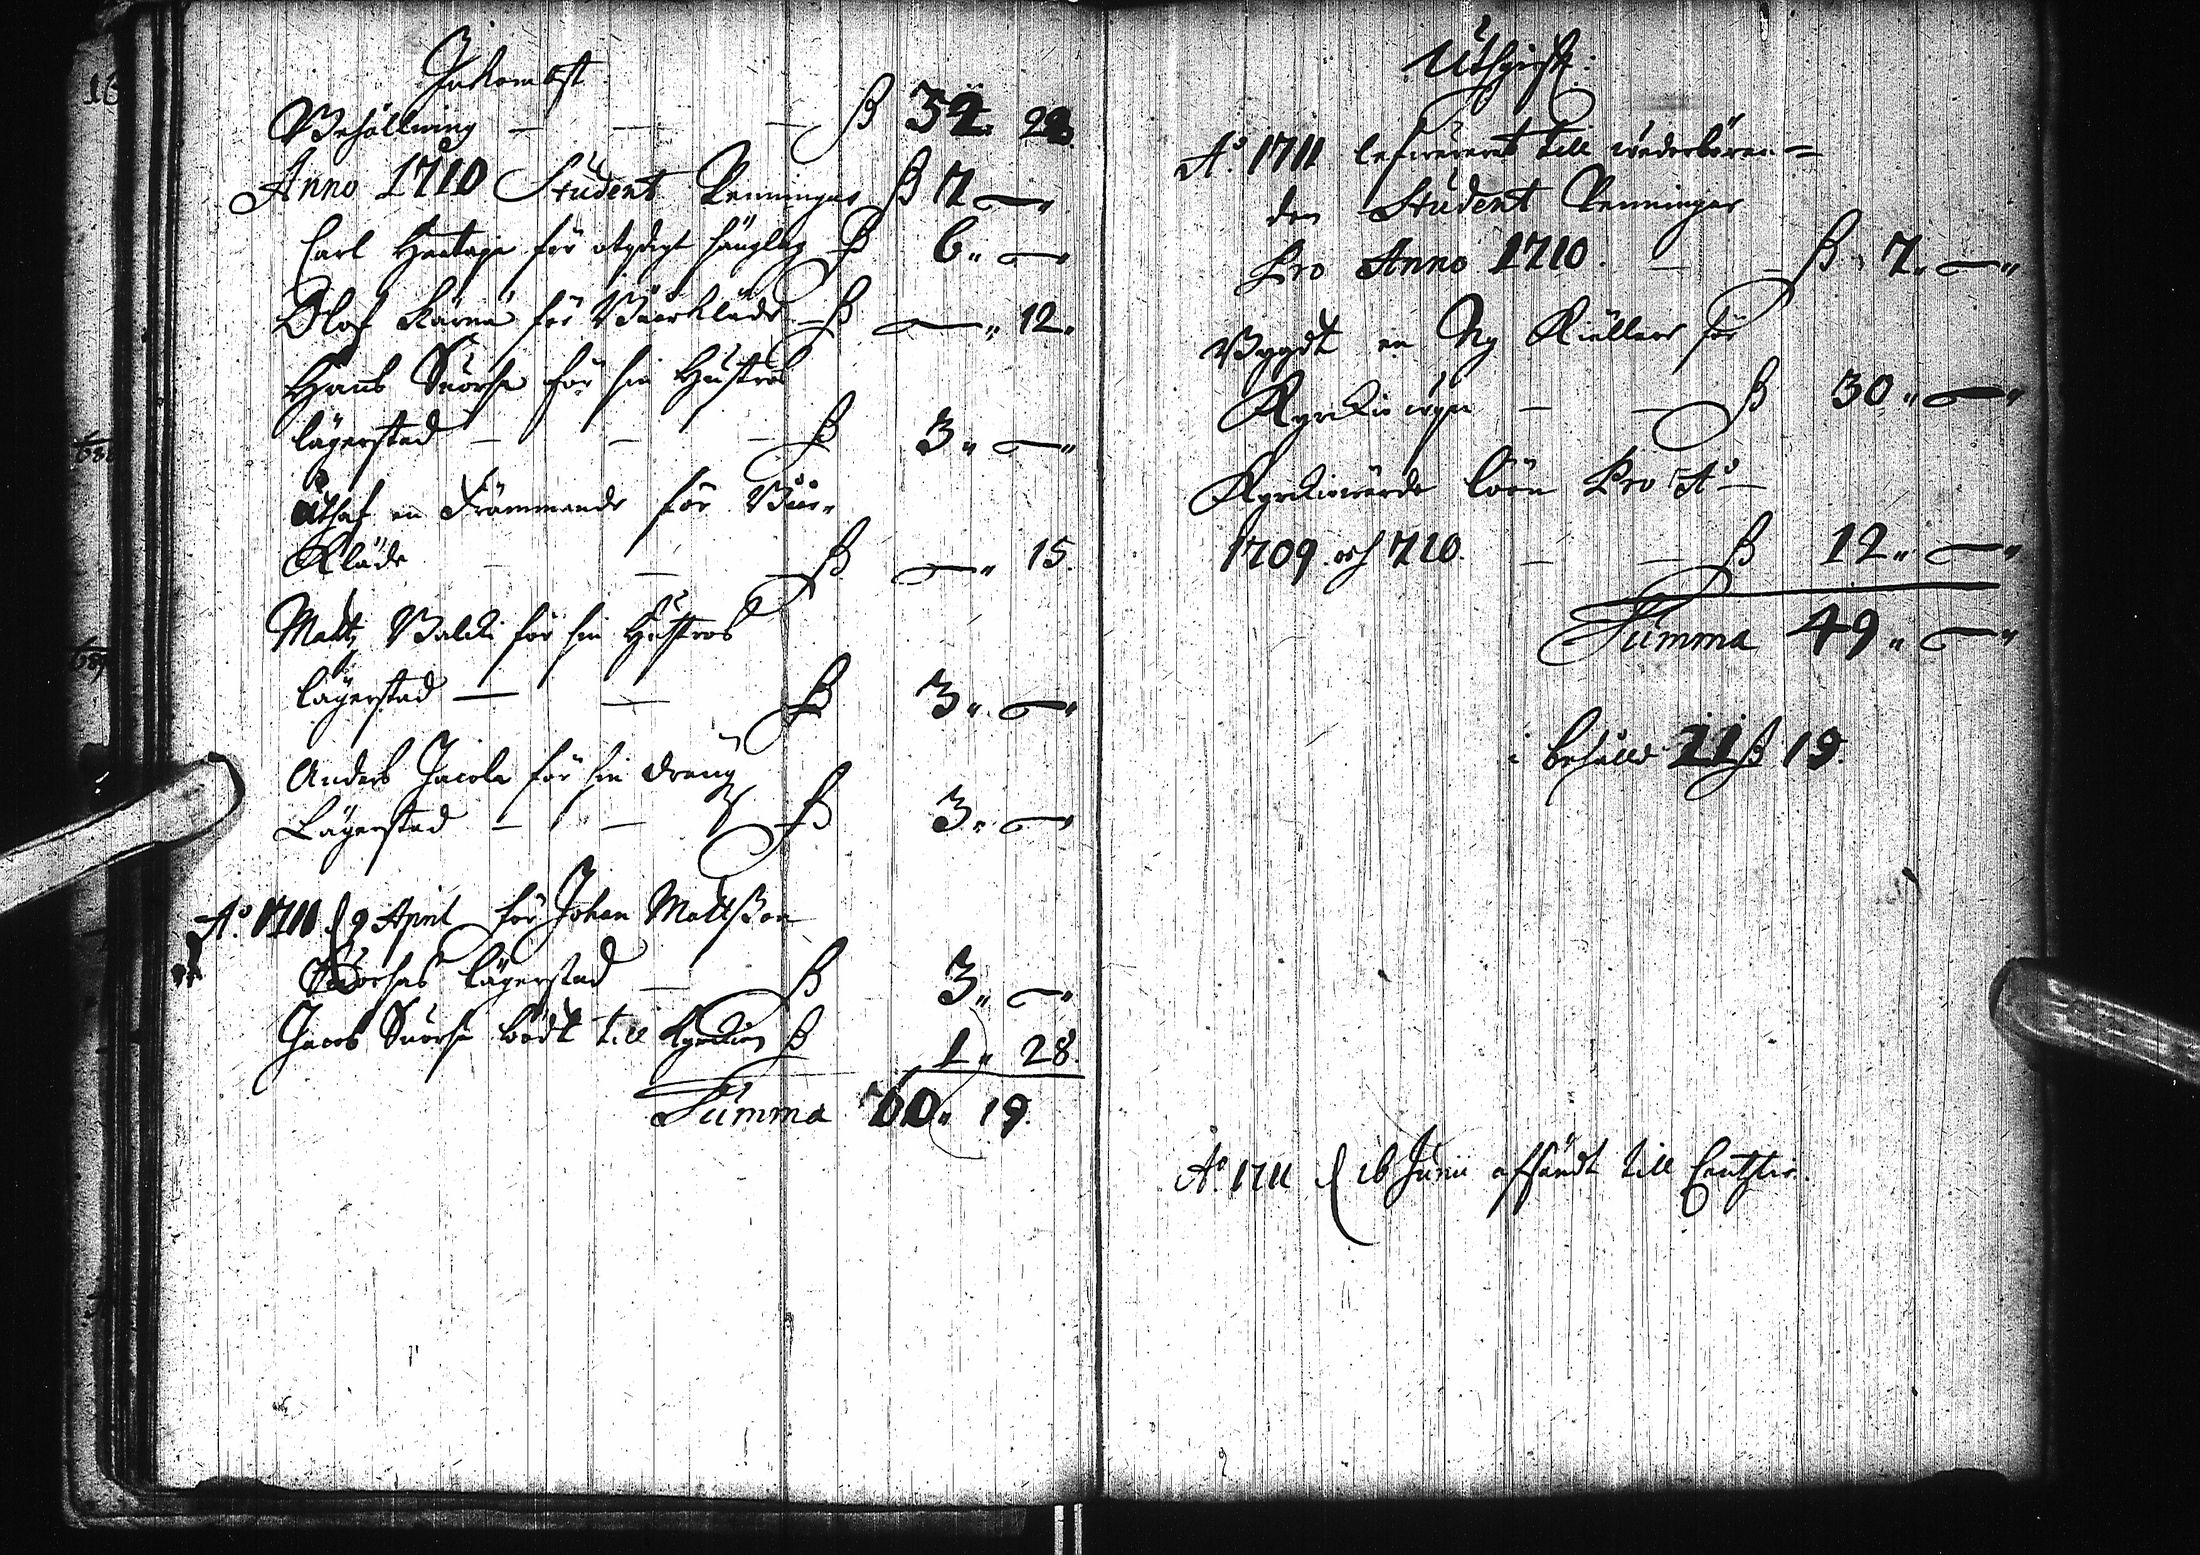 Inkombst
Behållning — — — ß 32„ 28.
Anno 1710 Student Penningar ß 7 —„
Carl för ß 6„ —„
Olof Kärnä för Båårkläde ß —„ 12„
Hans Snorffe för sin Hustros
lägerstad — — — ß 3„ —„
Uthaf en Främmande för Båår„
Kläde — — ß —„ 15.
Matts för sin Hustros
lägerstad — — ß 3„ —„
Anders Jacola för sin dräng
Lägerstad — — ß 3„ —„
A:o 1711 d 9 April för Johan Mattsson
lägerstad — ß 3„ —„
Jacob Snorffe bödt till Kyrkian ß 1„ 28.
Summa 60„ 19.
Uthgift:
A:o 1711 lefwererat till wederböran=
den Student Penningar
Pro Anno 1710. — — ß 7„ —„
Bygdt en Ny Kiällare för
— — ß 30„ —„
Kyrkiowärds löön Pro A:o —
1709 och 710. — — ß 12„ —„
Summa 49„ —„
i behåld 11 ß 19.
A:o 1711 d 16 Junii afsändt till
16